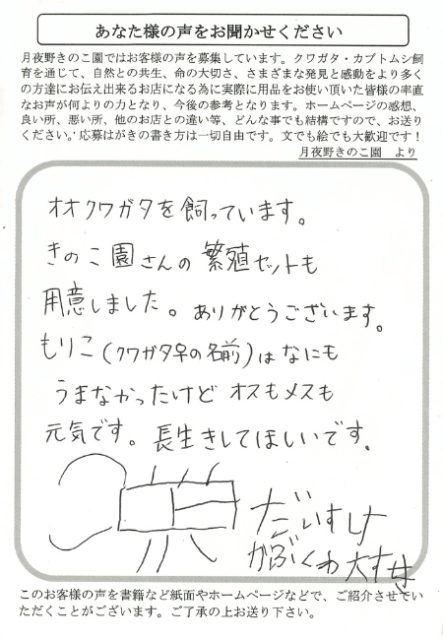 あなた様の声をお聞かせください
月夜野きのこ園ではお客様の声を募集しています。クワガタ・カブトムシ飼
育を通じて、自然との共生、命の大切さ、さまざまな発見と感動をより多く
の方達にお伝え出来るお店になる為に実際に用品をお使い頂いた皆様の率直
なお声が何よりの力となり、今後の参考となります。ホームページの感想、
良い所、悪い所、他のお店との違い等、どんな事でも結構ですので、お送り
ください。応募はがきの書き方は一切自由です。文でも絵でも大歓迎です！
月夜野きのこ園　より
オオクワガタを飼っています。
きのこ園さんの繁殖セットも
用意しました。ありがとうございます。
もりこ(クワガタ♀の名前)はなにも
うまなかったけど オスもメスも
元気です。長生きしてほしいです。
だいすけ
かぶくわ大すき
このお客様の声を書籍など紙面やホームページなどで、ご紹介させてい
ただくことがございます。ご了承の上お送り下さい。